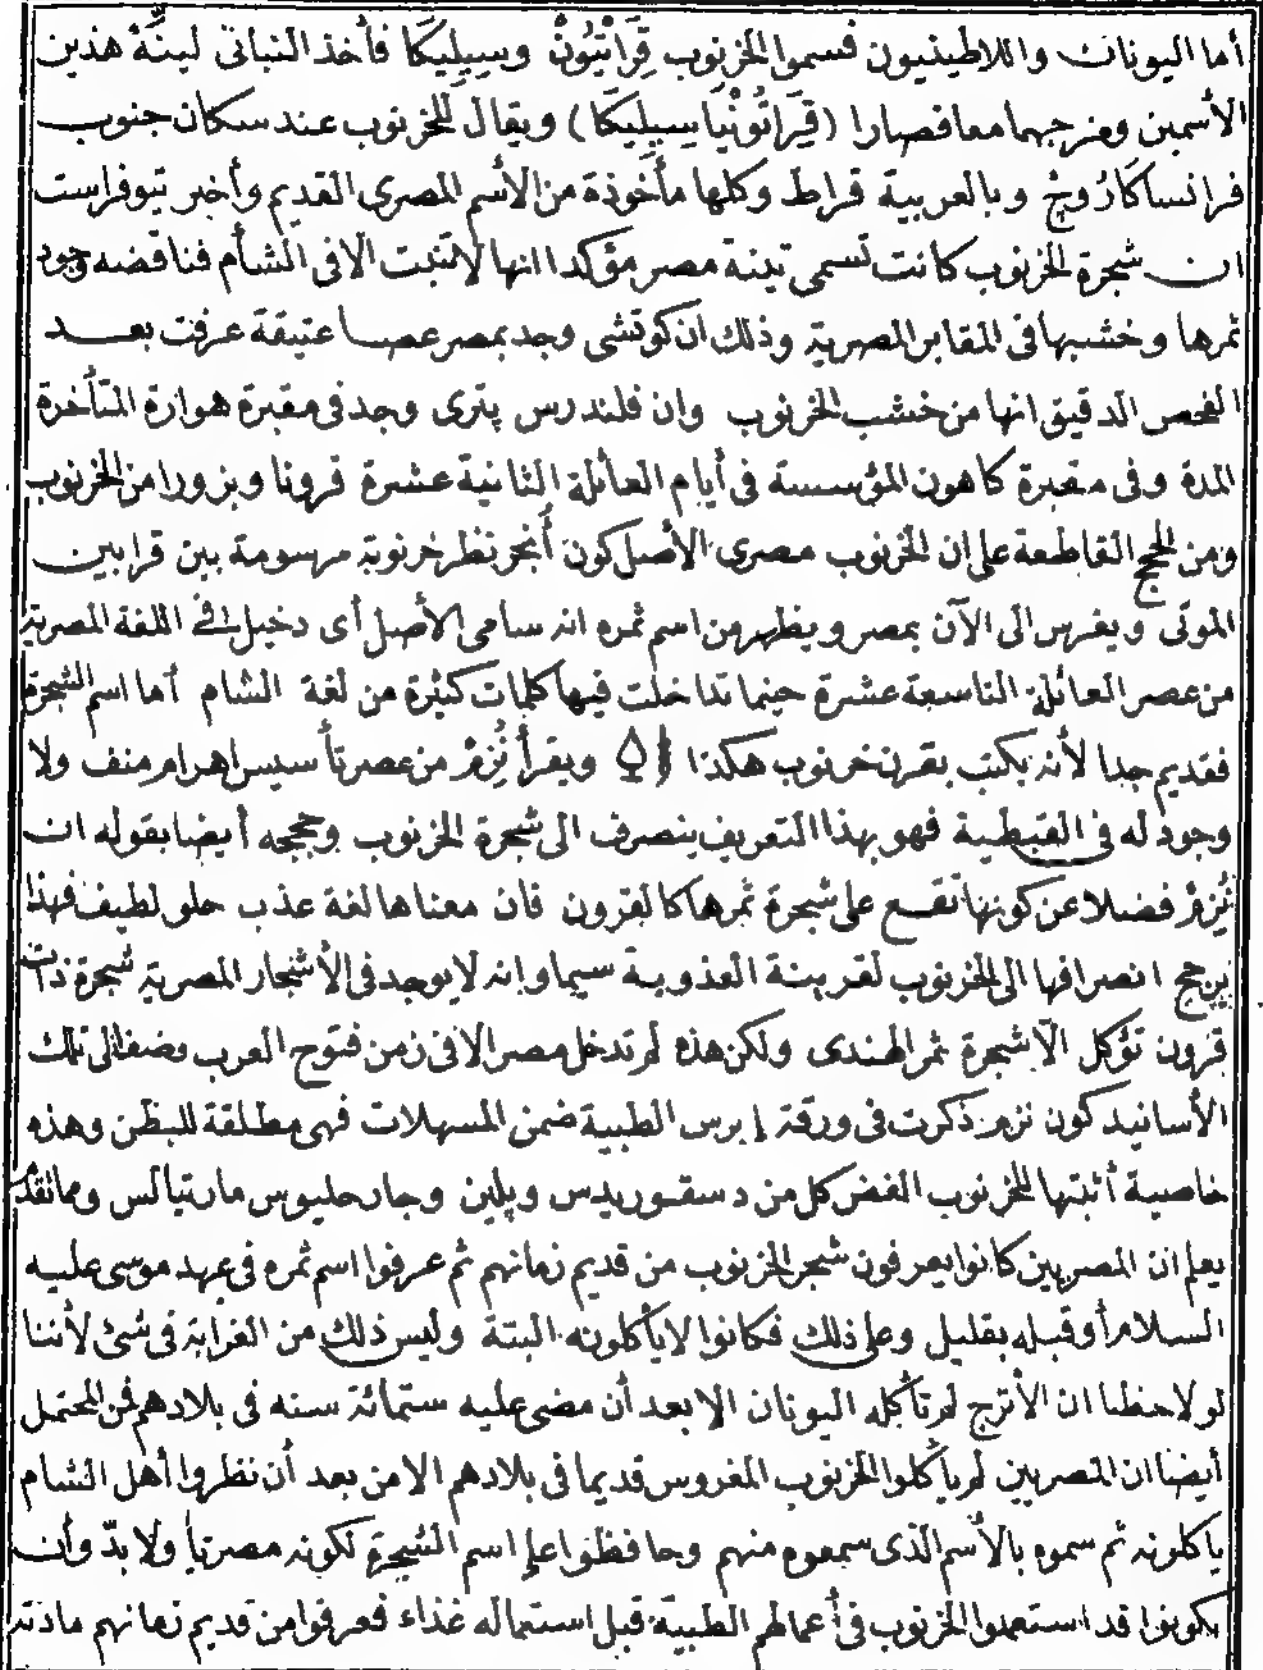 أما اليونان واللاطينيون فسموا الخرنوب قِرَاتْيُونْ وسِيلِيكَا فأخذ النباتى لينّهْ هذين
الأسمين ومزجهما معا فصارا (قِيرَاتُونْيَا سِيلِيكَا) ويقال للخرنوب عند سكان جنوب
فرانسا كَارُوجْ وبالعربية قراط وكلها مأخوذة من الأسم المصرى القديم وأخبر تيوفراست
ان شجرة الخرنوب كانت تسمى تينة مصر مؤكدا انها لا تنبت الا فى الشأم فناقضه وجود
ثمرها وخشبها فى المقابر المصرية وذلك ان كوتشى وجد بمصر عصا عتيقة عرفت بعد
الفحص الدقيق انها من خشب الخرنوب وان فلندرس پترى وجد فى مقبرة هوارة المتأخرة
المدة وفى مقبرة كاهون المؤسسة فى أيام العائلة الثانية عشرة قرونا وبزورا من الخرنوب
ومن الحجج القاطعة على ان الخرنوب مصرى الأصل كون أُنجر نظر خرنوبة مرسومة بين قرابين
الموتى ويغرس الى الآن بمصر ويظهر من اسم ثمره انه سامى الأصل أى دخيل فى اللغة المصرية
من عصر العائلة التاسعة عشرة حينما تداخلت فيها كلمات كثيرة من لغة الشام أما اسم الشجرة
فقديم جدا لأنه يكتب بقرن خرنوب هكذا ويقرأ نُزِمْ من عصر تأسيس اهرام منف ولا
وجود له فى القبطية فهو بهذا التعريف ينصرف الى شجرة الخرنوب وحججه أيضا بقوله ان
نُزِمْ فضلا عن كونها تقع على شجرة ثمرها كالقرون فان معناها لغة عذب حلو لطيف فهذا
يرجح انصرافها الى الخرنوب لقرينة العذوبة سيما وانه لا يوجد فى الأشجار المصرية شجرة ذات
قرون تؤكل الا شجرة ثمر الهندى ولكن هذه لم تدخل مصر الا فى زمن فتوح العرب وضف الى تلك
الأسانيد كون نزم ذكرت فى ورقة إبرس الطبية ضمن المسهلات فهى مطلقة للبطن وهذه
خاصية أثبتها للخرنوب الغض كل من دسقوريدس وپلين وجارحليوس مارتيالس ومما تقدم
يعلم ان المصريين كانوا يعرفون شجر الخرنوب من قديم زمانهم ثم عرفوا اسم ثمره فى عهد موسى عليه
السلام أو قبله بقليل وعلى ذلك فكانوا لا يأكلونه البتة وليس ذلك من الغرابة فى شئ لأننا
لو لاحظنا ان الأترج لم تأكله اليونان الا بعد أن مضى عليه ستمائة سنه فى بلادهم فمن المحتمل
أيضا ان المصريين لم يأكلوا الخرنوب المغروس قديما فى بلادهم الا من بعد أن نظروا أهل الشام
ياكلونه ثم سموه بالأسم الذى سمعوه منهم وحافظوا على اسم الشجرة لكونه مصريا ولا بدّ وأن
يكونوا قد استعملوا الخرنوب فى أعمالهم الطبية قبل استعماله غذاء فعرفوا من قديم زمانهم مادته